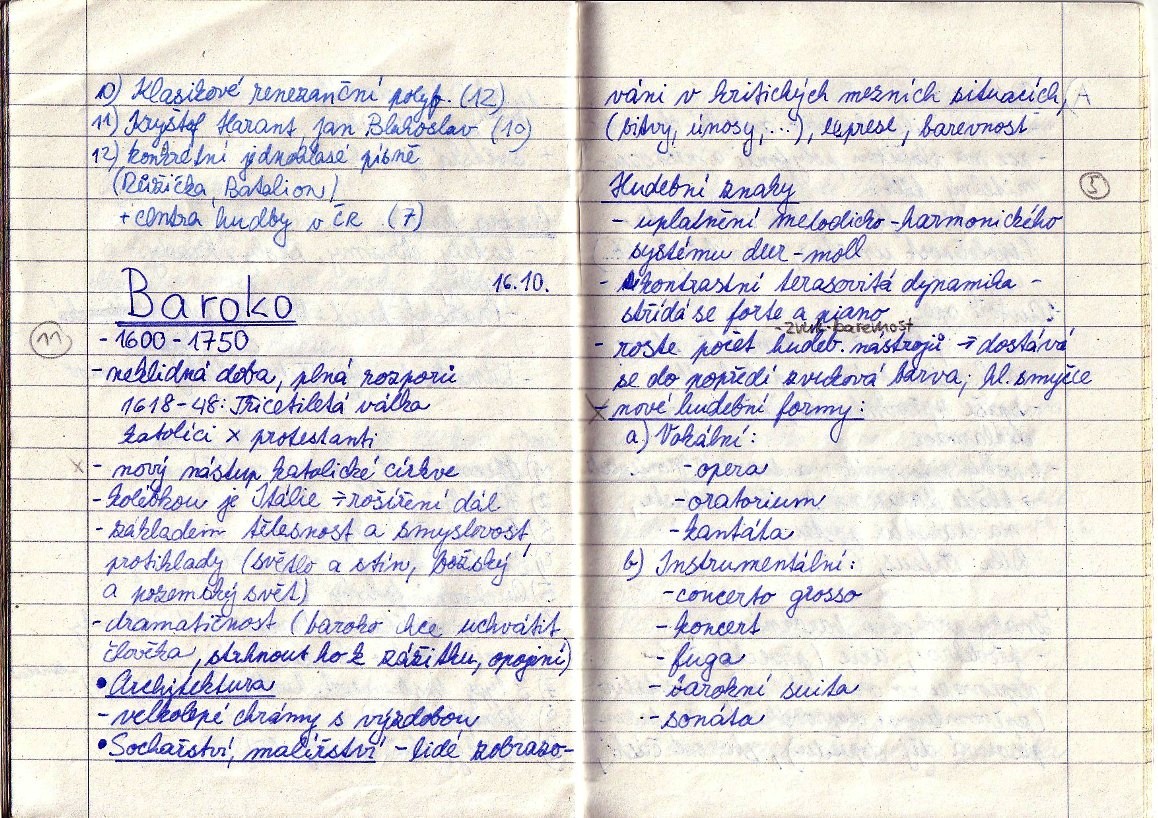 10) Klasikové renezanční polyf. (12)
11) Kryštof Harant, Jan Blahoslav (10)
12) konkrétní jednohlasé písně
(Růžička Batalion)
+ centra hudby v ČR (7)
16.10.
Baroko
11
- 1600 - 1750
- neklidná doba, plná rozporů
1618 - 48: Třicetiletá válka
katolíci x protestanti
x - nový nástup katolické církve
- kolébkou je Itálie → rošíření dál
- základem tělesnost a smyslovost,
protiklady (světlo a stín, božský
a pozemský svět)
- dramatičnost (baroko chce uchvátit
člověka, strhnout ho k zážitku, opojení)
• Architektura
- velkolepé chrámy s výzdobou
• Sochařství, malířství - lidé zobrazo-
váni v kritických mezních situacích,
(bitvy, únosy, ...), exprese, barevnost
Hudební znaky
5
- uplatnění melodicko-harmonického
systému dur - moll
- kontrastní terasovitá dynamika -
střídá se forte a piano
- zvuk. barevnost
- roste počet hudeb. nástrojů → dostává
se do popředí zvuková barva; hl. smyčce
x - nové hudební formy:
a) Vokální:
- opera
- oratorium
- kantáta
b) Instrumentální:
- concerto grosso
- koncert
- fuga
- barokní suita
- sonáta